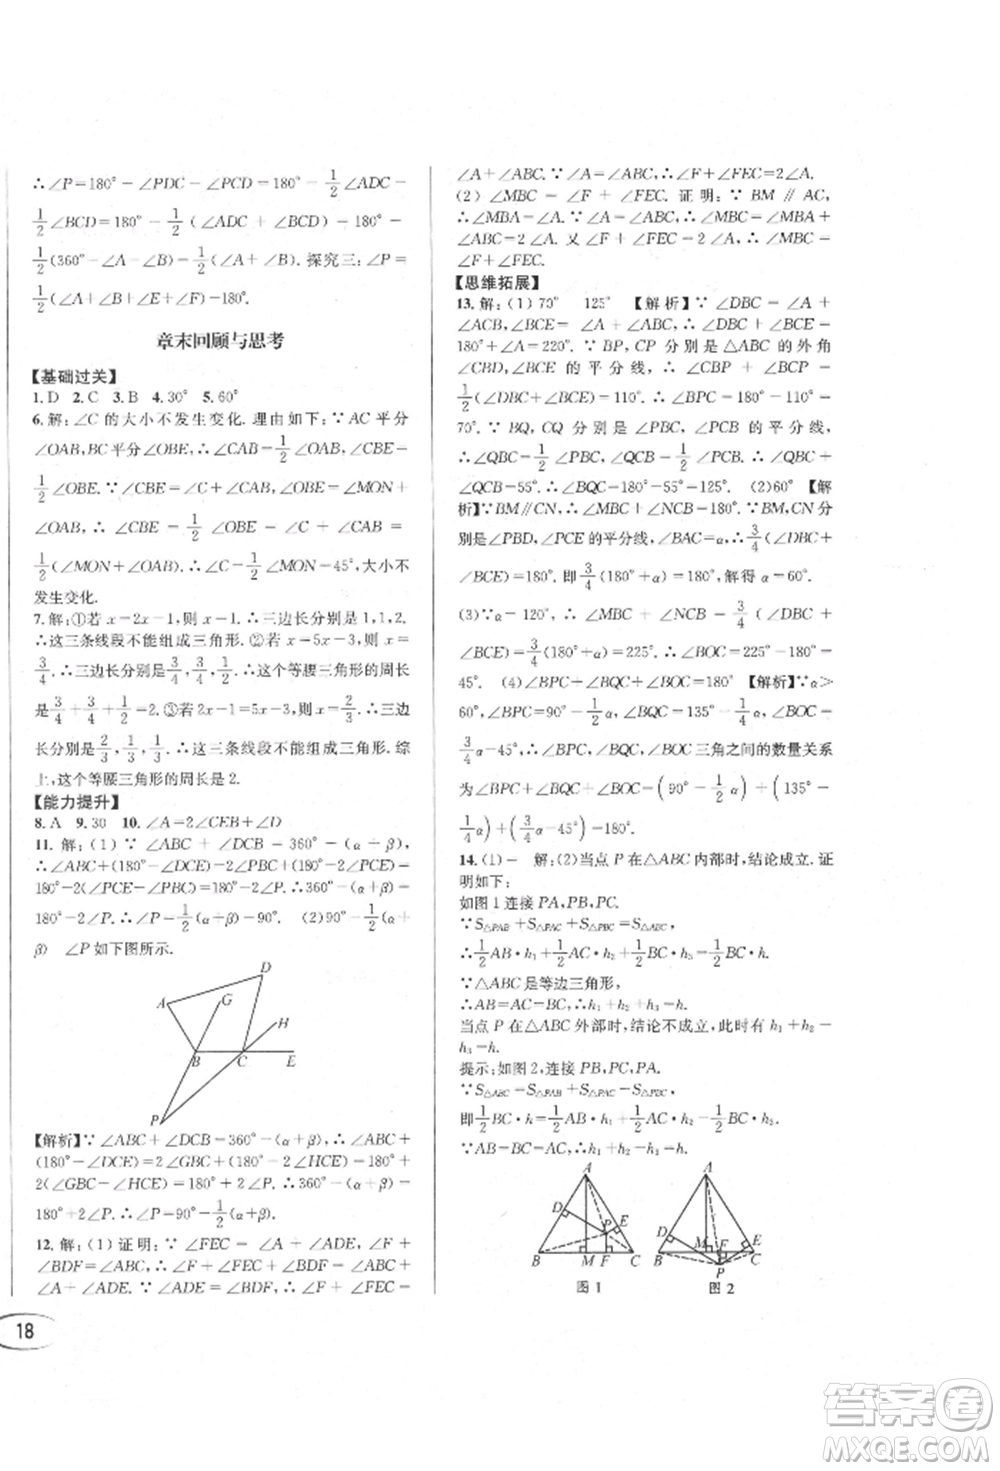 ∴∠P=180°-∠PDC-∠PCD=180°-1/2∠ADC-
1/2∠BCD=180°-1/2(∠ADC+∠BCD)=180°-
1/2(360°-∠A-∠B)=1/2(∠A+∠B). 探究三:∠P=
1/2(∠A+∠B+∠E+∠F)-180°.
章末回顾与思考
【基础过关】
1. D 2. C 3. B 4. 30° 5. 60°
6. 解:∠C 的大小不发生变化. 理由如下:∵AC 平分
∠OAB,BC平分∠OBE,∴∠CAB=1/2∠OAB,∠CBE=
1/2∠OBE. ∵∠CBE=∠C+∠CAB,∠OBE=∠MON+
∠OAB,∴∠CBE=1/2∠OBE=∠C+∠CAB=
1/2(∠MON+∠OAB). ∴∠C=1/2∠MON=45°,大小不
发生变化.
7. 解:①若 x=2x-1,则 x=1.∴三边长分别是 1,1,2.
∴这三条线段不能组成三角形. ②若 x=5x-3,则 x=
3/4.∴三边长分别是3/4,3/4,1/2.∴这个等腰三角形的周长
是3/4+3/4+1/2=2. ③若2x-1=5x-3,则x=2/3.∴三边
长分别是2/3,1/3,1/3.∴这三条线段不能组成三角形. 综
上,这个等腰三角形的周长是 2.
【能力提升】
8. A 9. 30 10. ∠A=2∠CEB+∠D
11. 解:(1)∵∠ABC+∠DCB=360°-(α+β),
∴∠ABC+(180°-∠DCE)=2∠PBC+(180°-2∠PCE)=
180°-2(∠PCE-∠PBC)=180°-2∠P.∴360°-(α+β)=
180°-2∠P.∴∠P=1/2(α+β)-90°. (2)90°-1/2(α+
β) ∠P 如下图所示.
D
G
A
H
B
C
E
P
【解析】∵∠ABC+∠DCB=360°-(α+β),∴∠ABC+
(180°-∠DCE)=2∠GBC+(180°-2∠HCE)=180°+
2(∠GBC-∠HCE)=180°+2∠P.∴360°-(α+β)=
180°+2∠P.∴∠P=90°-1/2(α+β).
12. 解:(1)证明:∵∠FEC=∠A+∠ADE,∠F+
∠BDF=∠ABC,∴∠F+∠FEC=∠F+
∠A+∠ADE. ∵∠ADE=∠BDF,∴∠F+∠FEC=
18
∠A+∠ABC. ∵∠A=∠ABC,∴∠F+∠FEC=2∠A.
(2)∠MBC=∠F+∠FEC. 证明:∵BM∥AC,
∴∠MBA=∠A. ∵∠A=∠ABC,∴∠MBC=∠MBA+
∠ABC=2∠A. 又∠F+∠FEC=2∠A,∴∠MBC=
∠F+∠FEC.
【思维拓展】
13. 解:(1)70° 125° 【解析】∵∠DBC=∠A+
∠ACB,∠BCE=∠A+∠ABC,∴∠DBC+∠BCE=
180°+∠A=220°. ∵BP,CP 分别是△ABC 的外角
∠CBD,∠BCE 的平分线,∴∠CBP+∠BCP=
1/2(∠DBC+∠BCE)=110°.∴∠BPC=180°-110°=
70°. ∵BQ,CQ 分别是∠PBC,∠PCB 的平分线,
∴∠QBC=1/2∠PBC,∠QCB=1/2∠PCB.∴∠QBC+
∠QCB=55°.∴∠BQC=180°-55°=125°. (2)60° 【解
析】∵BM∥CN,∴∠MBC+∠NCB=180°. ∵BM,CN分
别是∠PBD,∠PCE的平分线,∠BAC=α,∴3/4(∠DBC+
∠BCE)=180°. 即3/4(180°+α)=180°,解得 α=60°.
(3)∵α=120°,∴∠MBC+∠NCB=3/4(∠DBC+
∠BCE)=3/4(180°+α)=225°.∴∠BOC=225°-180°=
45°. (4)∠BPC+∠BQC+∠BOC=180° 【解析】∵α>
60°,∠BPC=90°-1/2α、∠BQC=135°-1/4α、∠BOC=
3/4α-45°,∴∠BPC,∠BQC,∠BOC三角之间的数量关系
为∠BPC+∠BQC+∠BOC=(90°-1/2α)+(135°-
1/4α)+(3/4α-45°)=180°.
14. (1)= 解:(2)当点 P 在△ABC 内部时,结论成立. 证
明如下:
如图 1连接 PA,PB,PC.
∵S△PAB+S△PAC+S△PBC=S△ABC,
∴1/2AB·h₁+1/2AC·h₂+1/2BC·h₃=1/2BC·h.
∵△ABC 是等边三角形,
∴AB=AC=BC,∴h₁+h₂+h₃=h.
当点 P 在△ABC 外部时,结论不成立,此时有 h₁+h₂-
h₃=h.
提示:如图 2,连接 PB,PC,PA.
∵S△ABC=S△PAB+S△PAC-S△PBC,
即1/2BC·h=1/2AB·h₁+1/2AC·h₂-1/2BC·h₃.
∵AB=BC=AC,∴h₁+h₂-h₃=h.
A
D
E
P
B
M F
C
图 1
A
D
E
M F
B
C
P
图 2
答案圈
MXQE.COM